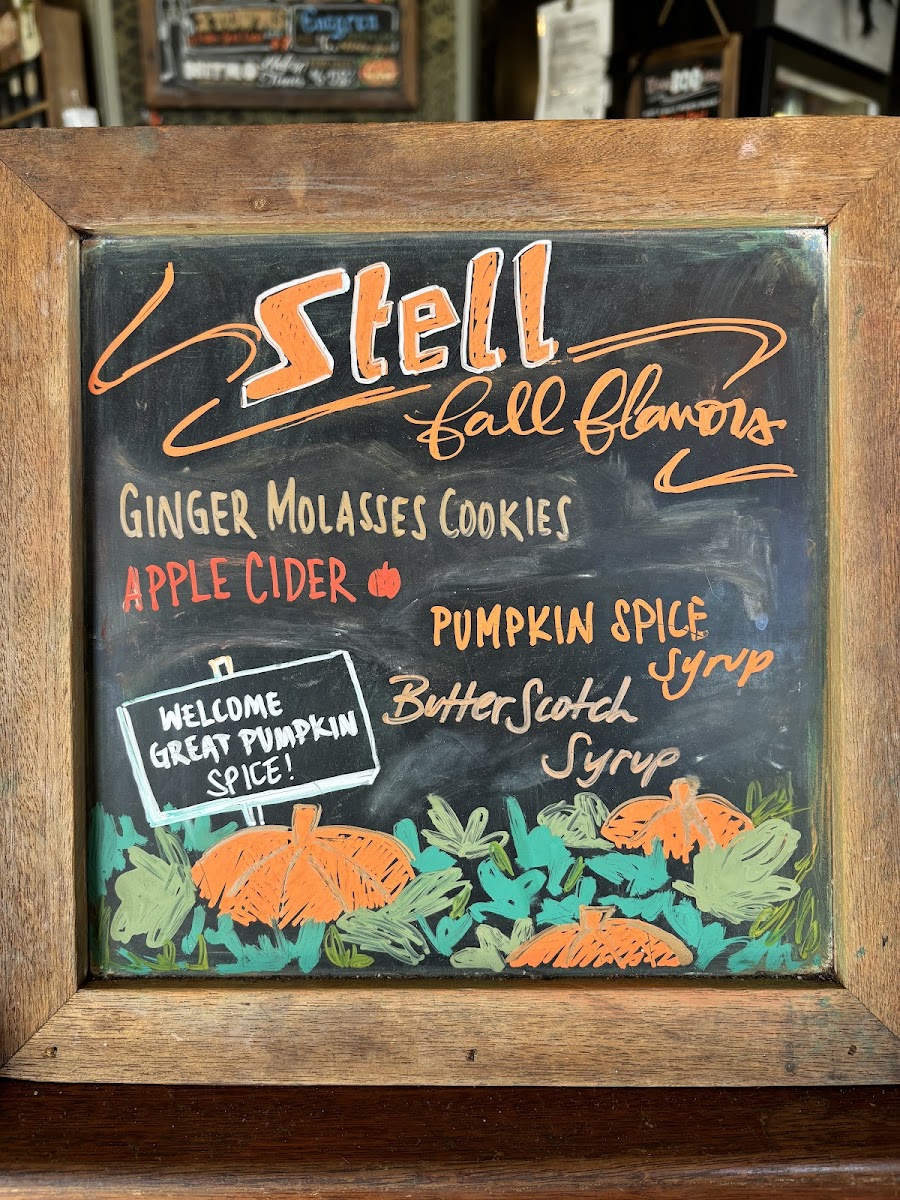 NITRO
Stell
fall flavors
GINGER MOLASSES COOKIES
APPLE CIDER
PUMPKIN SPICE
syrup
ButterScotch
Syrup
WELCOME
GREAT PUMPKIN
SPICE!